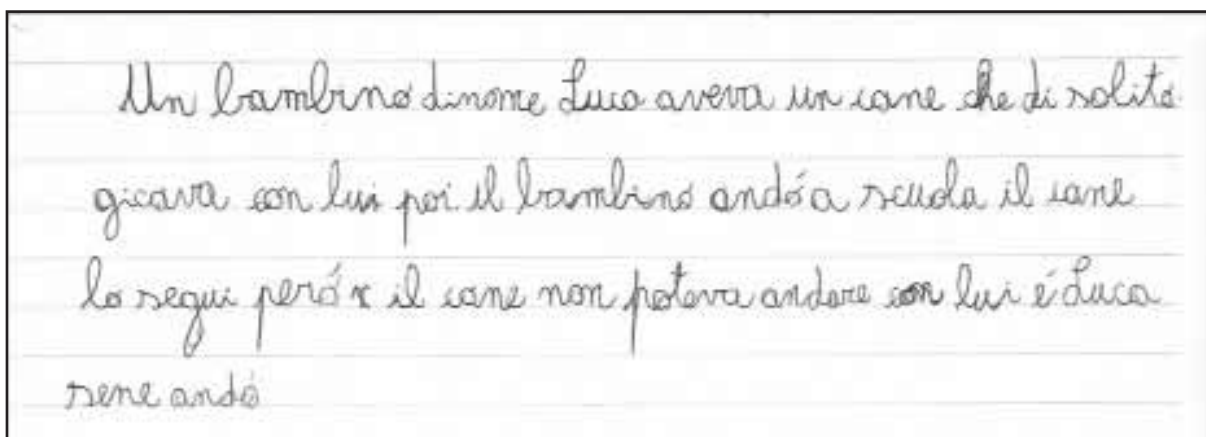 Un bambino dinome Luca aveva un cane che di solito
gicava con lui poi il bambino andó a scuola il cane
lo segui peró x il cane non poteva andare con lui é Luca
sene andó